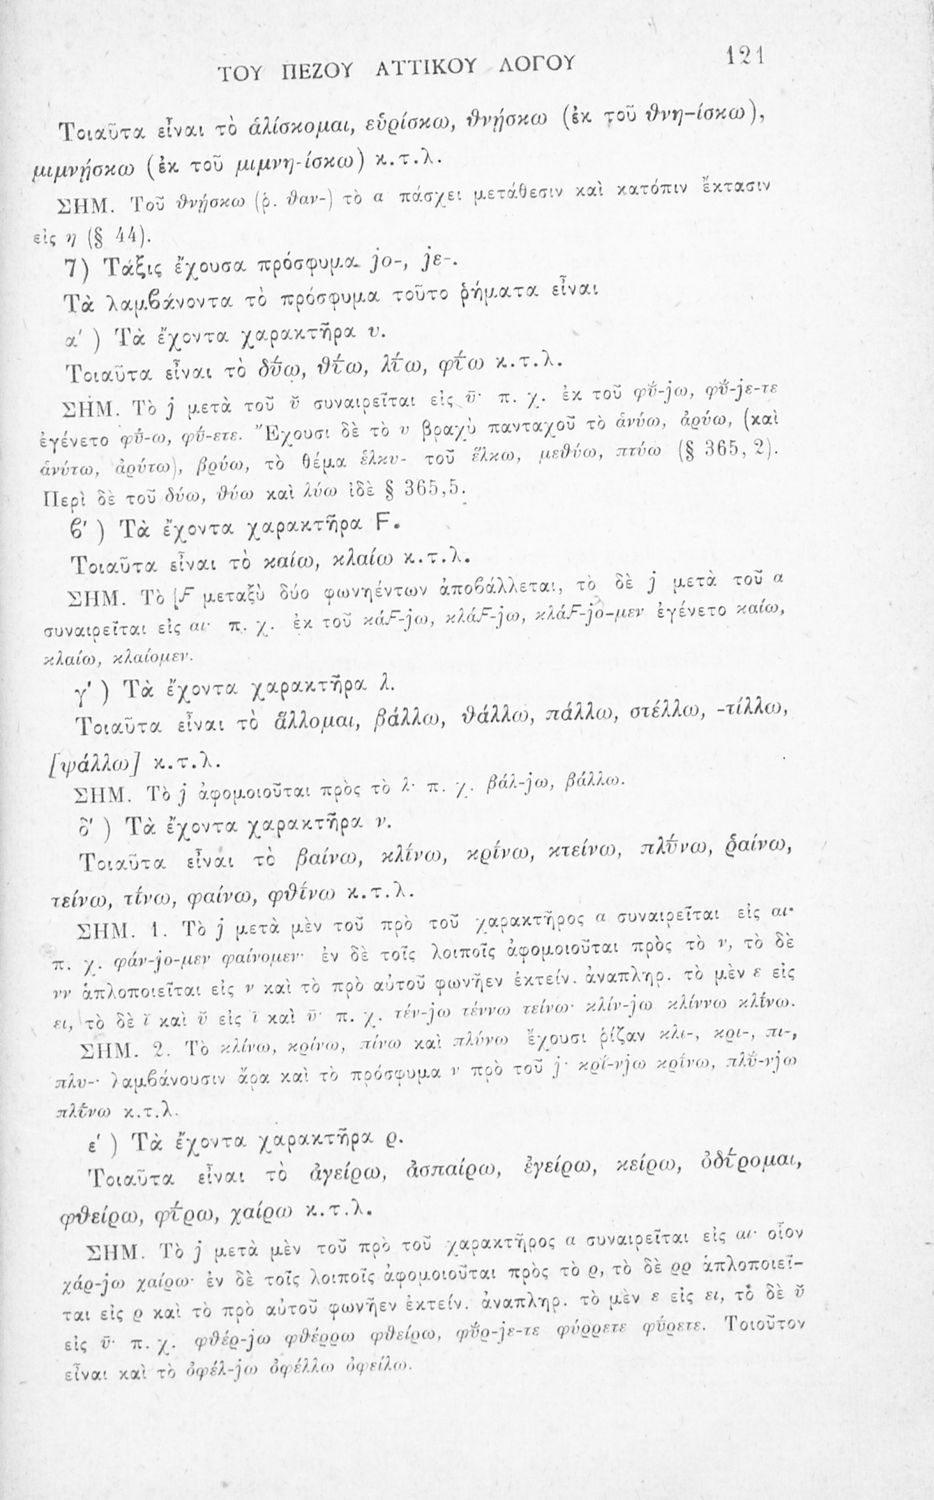 ΤΟΥ ΠΕΖΟΥ ΑΤΤΙΚΟΥ ΛΟΓΟΥ 121
Τοιαῦτα εἶναι τὸ ἁλίσκομαι, εὑρίσκω, θνῄσκω (ἐκ τοῦ θνη-ίσκω),
μιμνῄσκω (ἐκ τοῦ μιμνη-ίσκω) κ.τ.λ.
ΣΗΜ. Τοῦ θνῄσκω (ῥ. θαν-) τὸ α πάσχει μετάθεσιν καὶ κατόπιν ἔκτασιν
εἰς η (§ 44).
7) Τάξις ἔχουσα πρόσφυμα jo-, je-.
Τὰ λαμβάνοντα τὸ πρόσφυμα τοῦτο ῥήματα εἶναι
α' ) Τὰ ἔχοντα χαρακτῆρα υ.
Τοιαῦτα εἶναι τὸ δῡ́ω, θῡ́ω, λῡ́ω, φῡ́ω κ.τ.λ.
ΣΗΜ. Τὸ j μετὰ τοῦ ῠ συναιρεῖται εἰς ῡ· π. χ. ἐκ τοῦ φῠ́-jω, φῠ́-jε-τε
ἐγένετο φῡ́-ω, φῡ́-ετε. Ἔχουσι δὲ τὸ υ βραχὺ πανταχοῦ τὸ ἀνύω, ἀρύω, (καὶ
ἀνύτω, ἀρύτω), βρύω, τὸ θέμα ἑλκυ- τοῦ ἕλκω, μεθύω, πτύω (§ 365, 2).
Περὶ δὲ τοῦ δύω, θύω καὶ λύω ἰδὲ § 365,5.
β' ) Τὰ ἔχοντα χαρακτῆρα F.
Τοιαῦτα εἶναι τὸ καίω, κλαίω κ.τ.λ.
ΣΗΜ. Τὸ F μεταξὺ δύο φωνηέντων ἀποβάλλεται, τὸ δὲ j μετὰ τοῦ α
συναιρεῖται εἰς αι· π. χ. ἐκ τοῦ κάF-jω, κλάF-jω, κλάF-jo-μεν ἐγένετο καίω,
κλαίω, κλαίομεν.
γ' ) Τὰ ἔχοντα χαρακτῆρα λ.
Τοιαῦτα εἶναι τὸ ἅλλομαι, βάλλω, θάλλω, πάλλω, στέλλω, -τίλλω,
[ψάλλω] κ.τ.λ.
ΣΗΜ. Τὸ j ἀφομοιοῦται πρὸς τὸ λ· π. χ. βάλ-jω, βάλλω.
δ' ) Τὰ ἔχοντα χαρακτῆρα ν.
Τοιαῦτα εἶναι τὸ βαίνω, κλῑ́νω, κρῑ́νω, κτείνω, πλῡ́νω, ῥαίνω,
τείνω, τῑ́νω, φαίνω, φθῑ́νω κ.τ.λ.
ΣΗΜ. 1. Τὸ j μετὰ μὲν τοῦ πρὸ τοῦ χαρακτῆρος α συναιρεῖται εἰς αι·
π. χ. φάν-jo-μεν φαίνομεν· ἐν δὲ τοῖς λοιποῖς ἀφομοιοῦται πρὸς τὸ ν, τὸ δὲ
νν ἁπλοποιεῖται εἰς ν καὶ τὸ πρὸ αὐτοῦ φωνῆεν ἐκτείν. ἀναπληρ. τὸ μὲν ε εἰς
ει, τὸ δὲ ῐ καὶ ῠ εἰς ῑ καὶ ῡ· π. χ. τέν-jω τέννω τείνω· κλίν-jω κλίννω κλῑ́νω.
ΣΗΜ. 2. Τὸ κλίνω, κρίνω, πίνω καὶ πλύνω ἔχουσι ῥίζαν κλι-, κρι-, πι-,
πλυ-· λαμβάνουσιν ἄρα καὶ τὸ πρόσφυμα ν πρὸ τοῦ j· κρῐ́-νjω κρῑ́νω, πλῠ́-νjω
πλῡ́νω κ.τ.λ.
ε' ) Τὰ ἔχοντα χαρακτῆρα ρ.
Τοιαῦτα εἶναι τὸ ἀγείρω, ἀσπαίρω, ἐγείρω, κείρω, ὀδῡ́ρομαι,
φθείρω, φῡ́ρω, χαίρω κ.τ.λ.
ΣΗΜ. Τὸ j μετὰ μὲν τοῦ πρὸ τοῦ χαρακτῆρος α συναιρεῖται εἰς αι· οἷον
χάρ-jω χαίρω· ἐν δὲ τοῖς λοιποῖς ἀφομοιοῦται πρὸς τὸ ρ, τὸ δὲ ρρ ἁπλοποιεῖ-
ται εἰς ρ καὶ τὸ πρὸ αὐτοῦ φωνῆεν ἐκτείν. ἀναπληρ. τὸ μὲν ε εἰς ει, τὸ δὲ ῠ
εἰς ῡ· π. χ. φθέρ-jω φθέρρω φθείρω, φῠ́ρ-jε-τε φύρρετε φῡ́ρετε. Τοιοῦτον
εἶναι καὶ τὸ ὀφέλ-jω ὀφέλλω ὀφείλω.